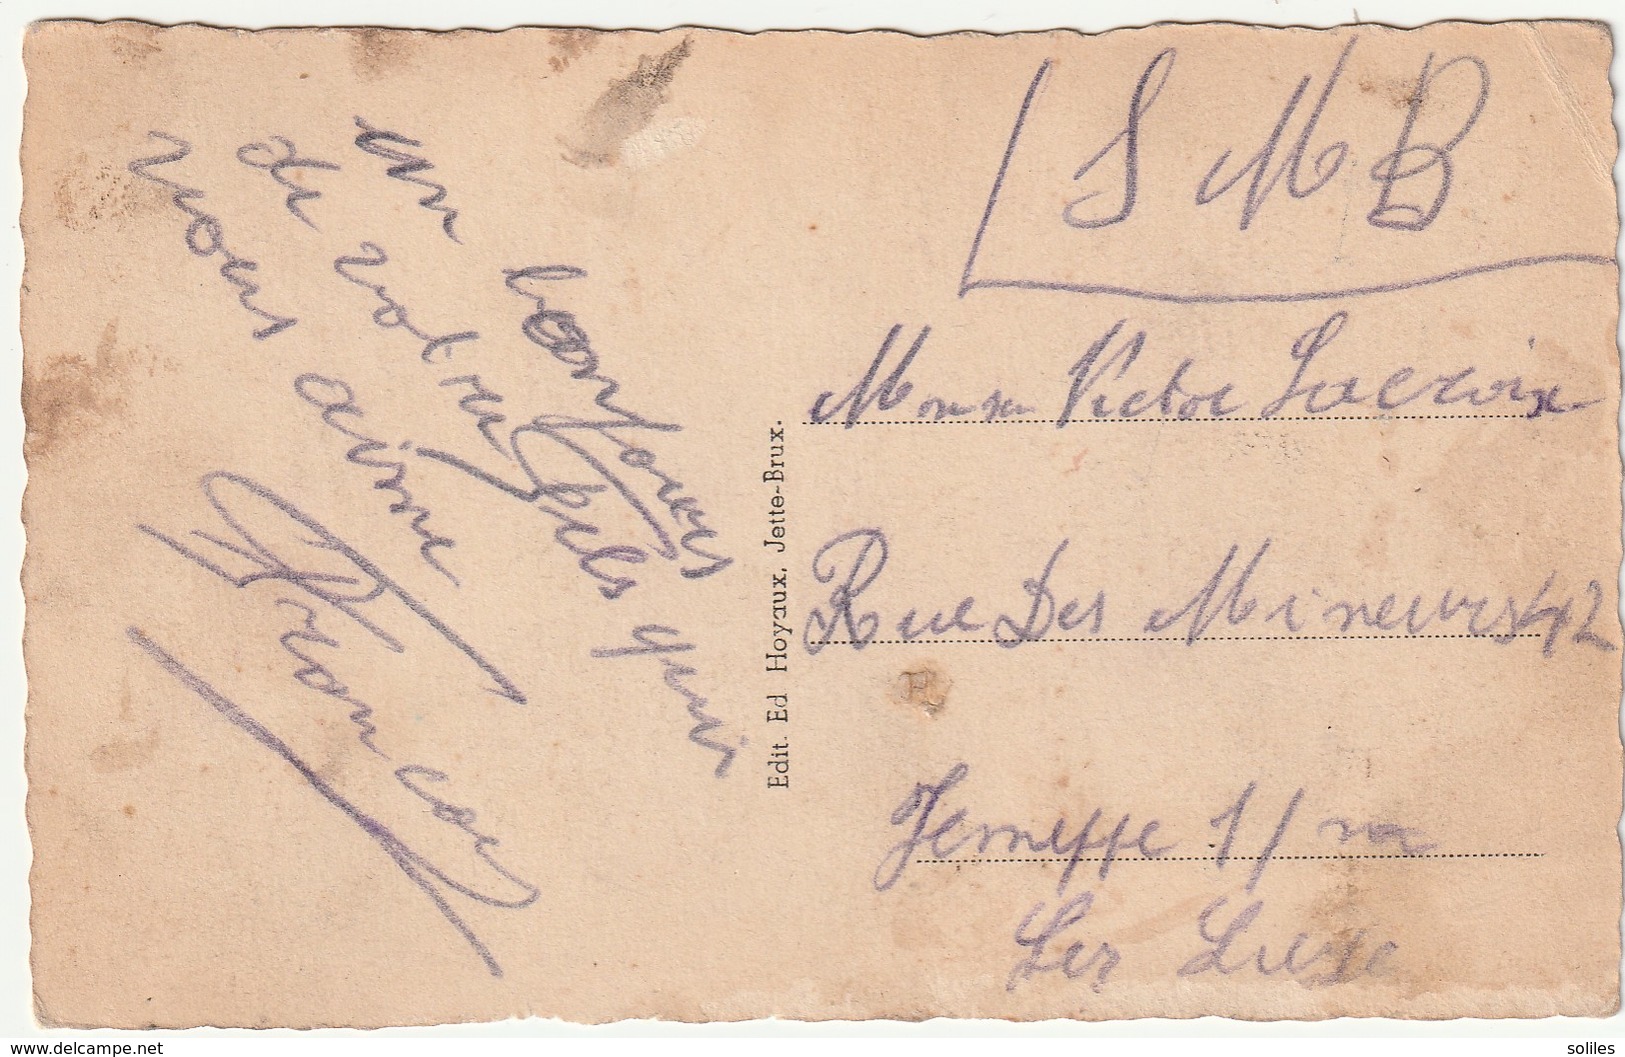 un bonjours
de votre fils qui
vous aime
Francoi
Edit. Ed Hoyaux, Jette-Brux.
S M B
Victor Lacroix
Rue Des Mineurs 42
Jemeppe s/m
Lez Liege
delcampe.net
soliles